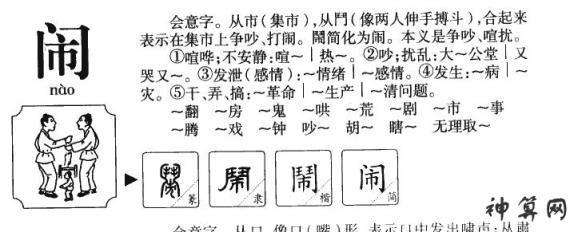 闹
nào
会意字。从市(集市),从鬥(像两人伸手搏斗),合起来
表示在集市上争吵、打闹。鬧简化为闹。本义是争吵、喧扰。
①喧哗;不安静:喧~|热~。②吵;扰乱:大~公堂|又
哭又~。③发泄(感情):~情绪|~感情。④发生:~病|~
灾。⑤干、弄、搞:~革命|~生产|~清问题。
~翻 ~房 ~鬼 ~哄 ~荒 ~剧 ~市 ~事
~腾 ~戏 ~钟 吵~ 胡~ 瞎~ 无理取~
鬧 篆 鬧 隶 鬧 楷 闹 简
神算网
会意字。从口,像口(嘴)形,表示口中发出啸声;从肃